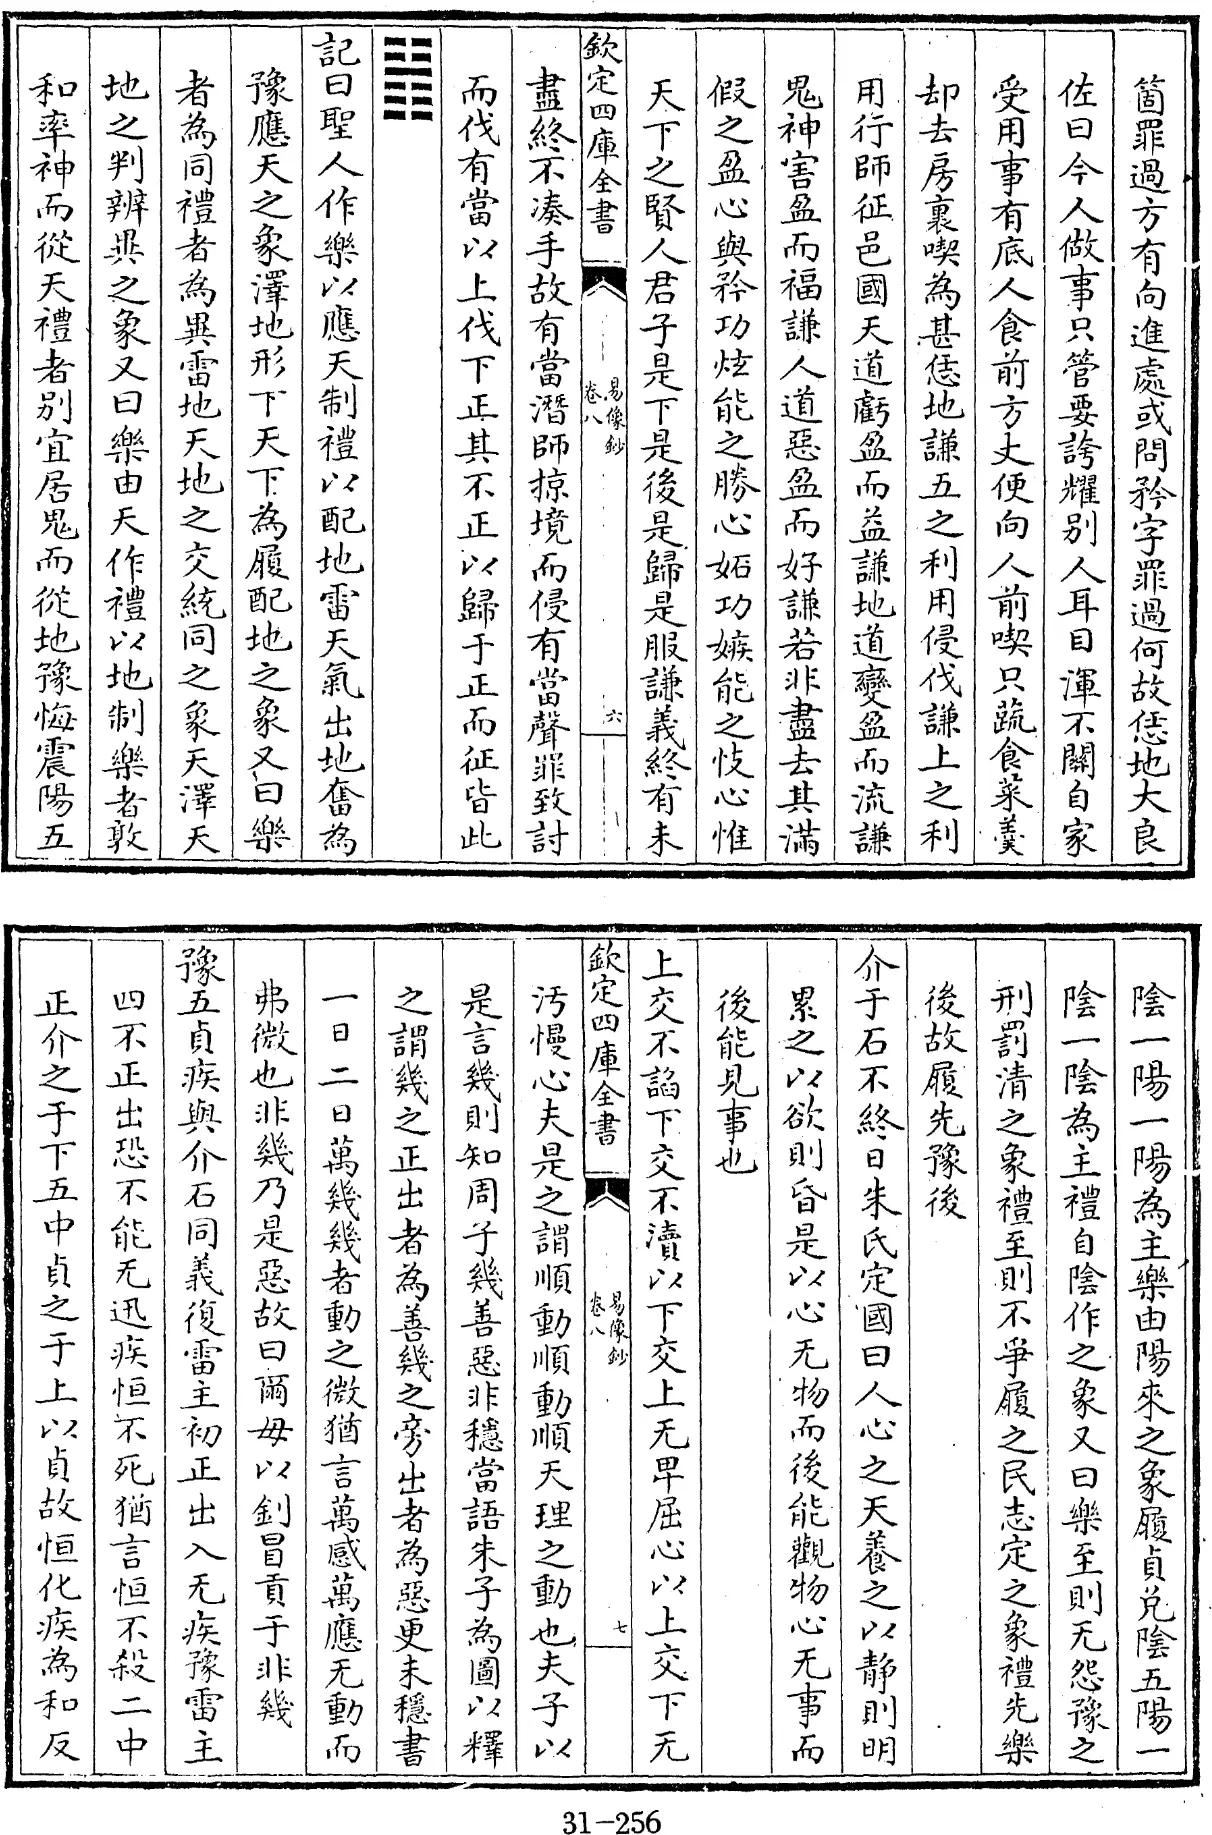 箇罪過方有向進處或問矜字罪過何故恁地大良
佐曰今人做事只管要誇耀别人耳目渾不關自家
受用事有底人食前方丈便向人前喫只蔬食菜羹
却去房裏喫為甚恁地謙五之利用侵伐謙上之利
用行師征邑國天道虧盈而益謙地道變盈而流謙
鬼神害盈而福謙人道惡盈而好謙若非盡去其滿
假之盈心與矜功炫能之勝心妬功嫉能之忮心惟
天下之賢人君子是下是後是歸是服謙義終有未
欽定四庫全書
易像鈔
卷八
六
盡終不凑手故有當潛師掠境而侵有當聲罪致討
而伐有當以上伐下正其不正以歸于正而征皆此
䷏
記曰聖人作樂以應天制禮以配地雷天氣出地奮為
豫應天之象澤地形下天下為履配地之象又曰樂
者為同禮者為異雷地天地之交統同之象天澤天
地之判辨異之象又曰樂由天作禮以地制樂者敦
和率神而從天禮者别宜居鬼而從地豫悔震陽五
陰一陽一陽為主樂由陽來之象履貞兌陰五陽一
陰一陰為主禮自陰作之象又曰樂至則无怨豫之
刑罰清之象禮至則不爭履之民志定之象禮先樂
後故履先豫後
介于石不終日朱氏定國曰人心之天養之以靜則明
累之以欲則昏是以心无物而後能觀物心无事而
後能見事也
上交不諂下交不瀆以下交上无卑屈心以上交下无
欽定四庫全書
易像鈔
卷八
七
汚慢心夫是之謂順動順動順天理之動也夫子以
是言幾則知周子幾善惡非穩當語朱子為圖以釋
之謂幾之正出者為善幾之旁出者為惡更未穩書
一日二日萬幾幾者動之微猶言萬感萬應无動而
弗微也非幾乃是惡故曰爾毋以釗冒貢于非幾
豫五貞疾與介石同義復雷主初正出入无疾豫雷主
四不正出恐不能无迅疾恒不死猶言恒不殺二中
正介之于下五中貞之于上以貞故恒化疾為和反
31-256